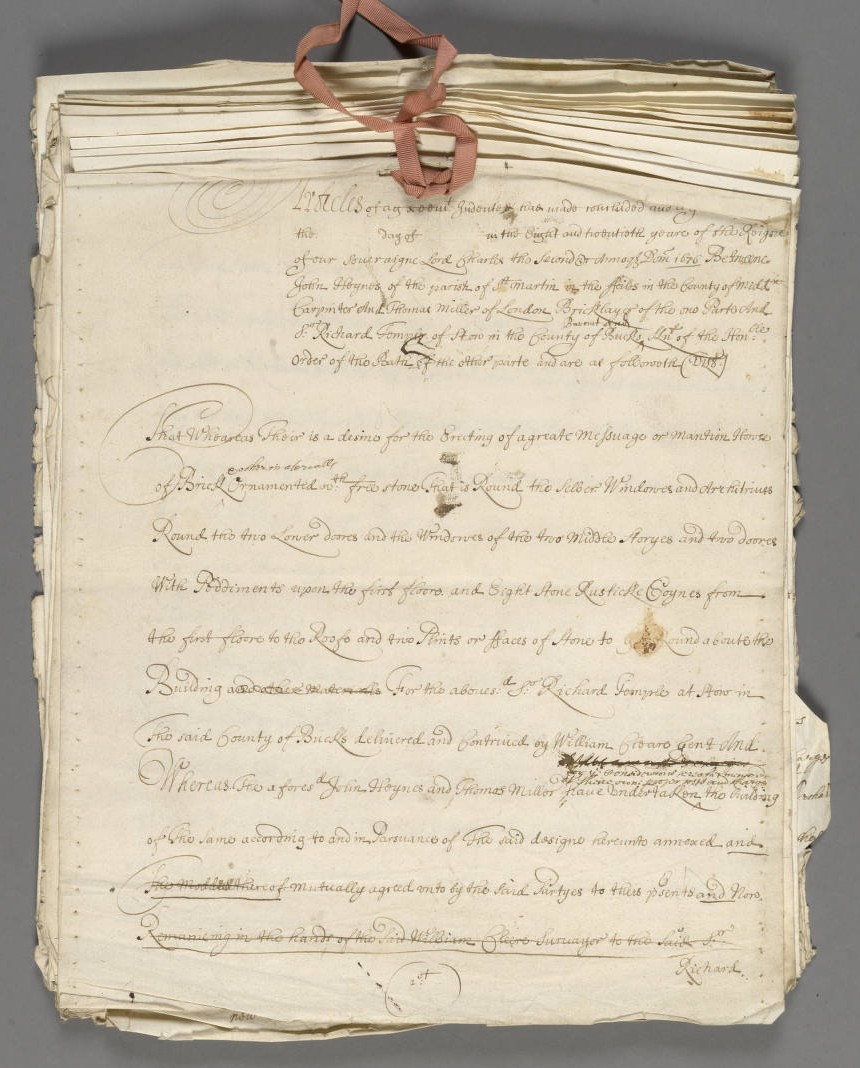 Articles of agreemt. Indented had made concluded
the dayof in the Eight and twentieth yeare of the Reigne
of our Soveraigne Lord Charles the Second Annoq Dom 1676 Betweene
John Heynes of the parish of St martin in the ffeilds in the County of Midd
Carpinter And Thomas Miller of London Bricklayer of the one Parte And
Barnt And
Sr. Richard Temple of Stow in the County of Bucks Knt of the Honble
Order of the Bath of the other parte and are as followeth (Vizt)
That Wheareas Their is a desine for the Erecting of a greate Messuage or Mantion House
other materialls
of Brick Ornamented wth free stone That is Round the Seller Windowes and Architrives
Round the two Lower doores and the Windowes of the two Middle Storyes and two doores
With Pediments upon the first floore and Eight Stone Rusticke Coynes from
the first floore to the Roofe and two Plints or ffaces of Stone to round aboute the
Building and other Materialls For the aboves:d Sr Richard Temple at Stow in
The said County of Bucks delivered and Contrived by William Cleare Gent And
Whereas The afores:d John Heynes and Thomas Miller have undertaken the building
of The Same according to and in Pursuance of The said designe hereunto annexed and
The Moddell thereof mutually agreed unto by the said Partyes to theis psents and Now
Remaineing in the hands of the Said William Cleere Survayor to the Said Sr
Richard
1st
new